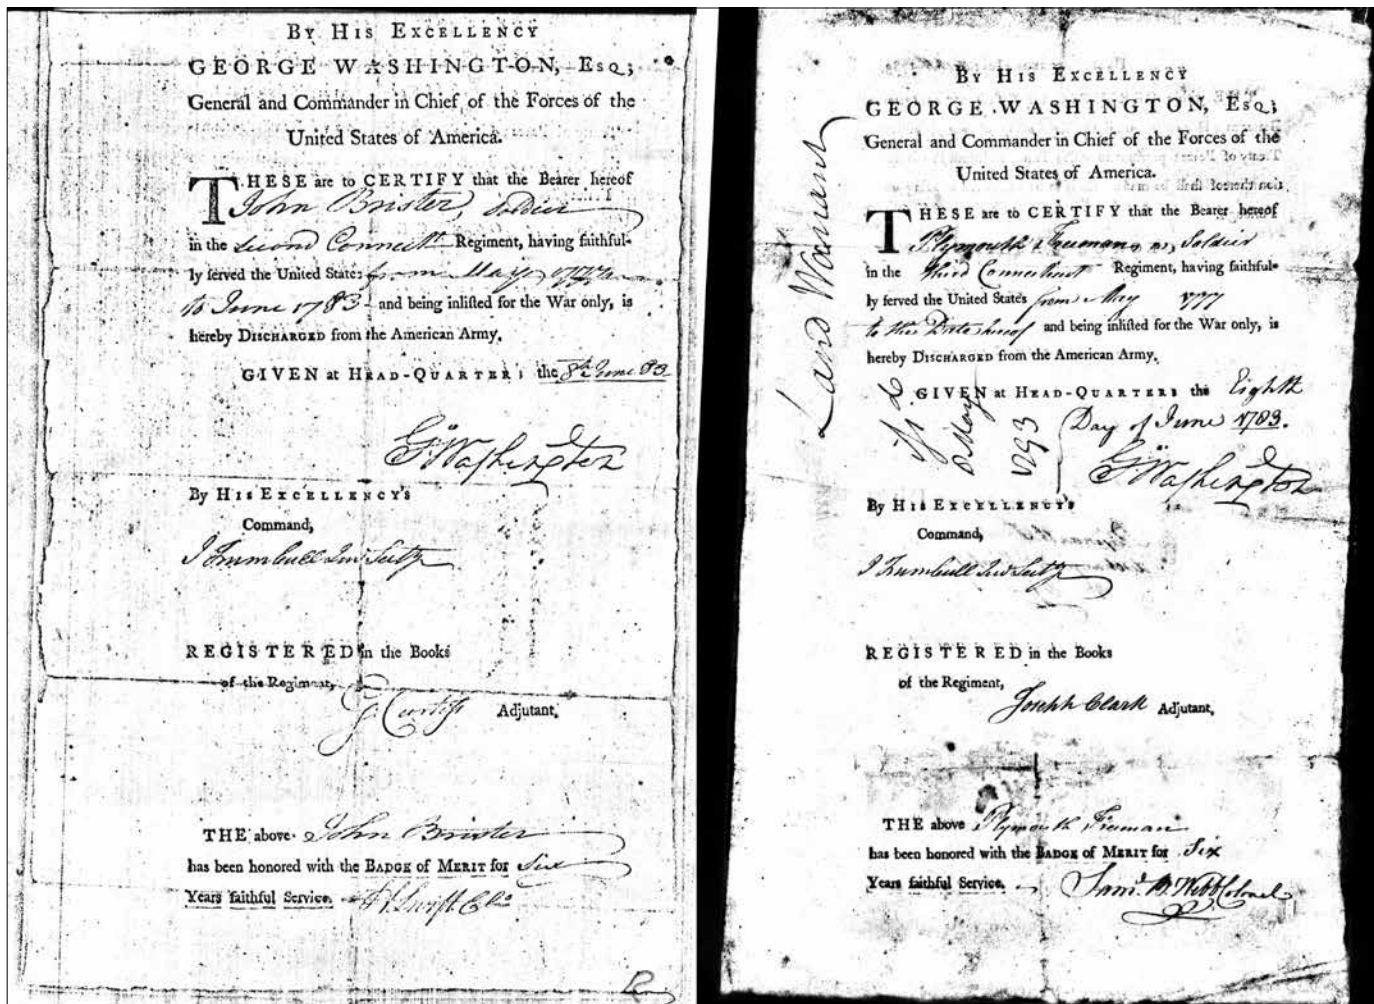 BY HIS EXCELLENCY
GEORGE WASHINGTON, ESQ;
General and Commander in Chief of the Forces of the
United States of America.
THESE are to CERTIFY that the Bearer hereof
John Brister, Soldier
in the second Connectt. Regiment, having faithful-
ly served the United States from May 1777
to June 1783 and being inlisted for the War only, is
hereby DISCHARGED from the American Army.
GIVEN at HEAD-QUARTERS the 8th June 83
Go Washington
By HIS EXCELLENCY'S
Command,
J Trumbull Jun Secty
REGISTERED in the Books
of the Regiment,
Curtiss Adjutant,
THE above John Brister
has been honored with the BADGE of MERIT for Six
Years faithful Service. Swift Colo
BY HIS EXCELLENCY
GEORGE WASHINGTON, ESQ;
General and Commander in Chief of the Forces of the
United States of America.
THESE are to CERTIFY that the Bearer hereof
Plymouth Freeman, Soldier
in the third Connecticut Regiment, having faithful-
ly served the United States from May 1777
to this Date hereof and being inlisted for the War only, is
hereby DISCHARGED from the American Army.
GIVEN at HEAD-QUARTERS the Eighth
Day of June 1783.
Go Washington
By HIS EXCELLENCY'S
Command,
J Trumbull Jun Secty
REGISTERED in the Books
of the Regiment,
Joseph Clark Adjutant,
THE above Plymouth Freeman
has been honored with the BADGE of MERIT for Six
Years faithful Service. Saml. B. Webb Colonel
Land Warrant
May
1793